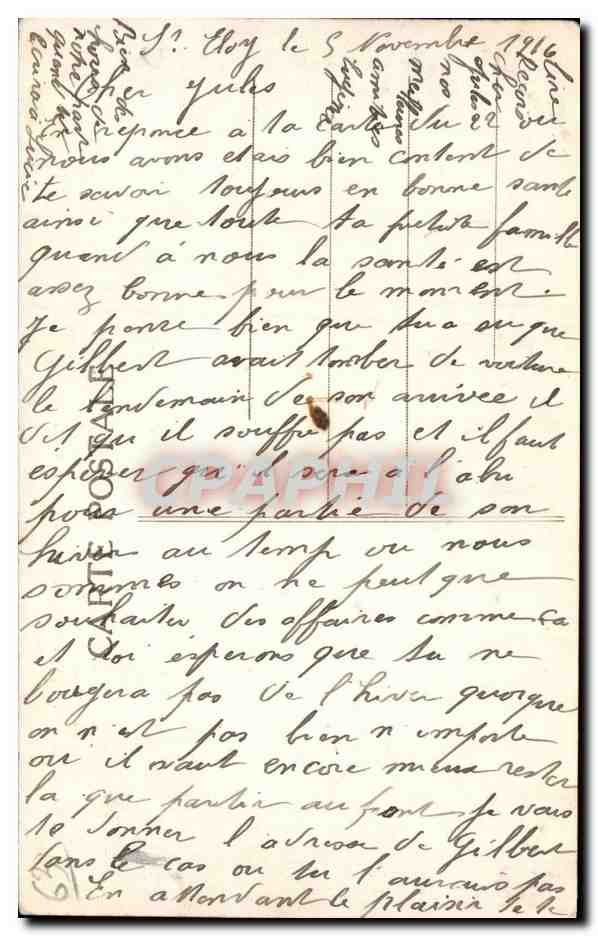 St Eloy le 5 Novembre 1916
Cher Jules
reponce a ta carte du 22 ou
nous avons etais bien content de
te savoir toujours en bonne santé
ainsi que toute ta petite famille
quand á nous la santé est
assez bonne pour le moment.
Je panse bien que tu a su que
Gilbert avait tomber de voiture
le lendemain de son arrivee il
dit qu il souffre pas et il faut
espérer qu'il sera a l'abri
pour une partie de son
hiver au temp ou nous
sommes on ne peut que
souhaiter des affaires comme ca
et toi ésperons que tu ne
bougera pas de l'hiver quoique
on n'est pas bien n'importe
ou il vaut encore mieux rester
la que partir au front Je vais
te donner l'adresse de Gilbert
dans le cas ou tu l'aurais pas
En attendant le plaisir de te
lire
Reçois
cher
Jules
nos
meilleures
amities
Bien de
notre part
quant
Lucie
CARTE POSTALE
CPAPHIL
63